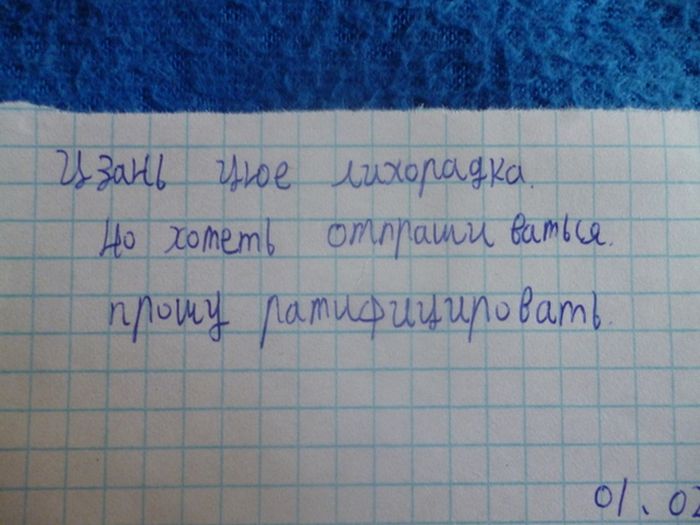 Цзань Цюе лихорадка.
но хотеть отпраши ваться.
прошу ратифицировать.
01.0